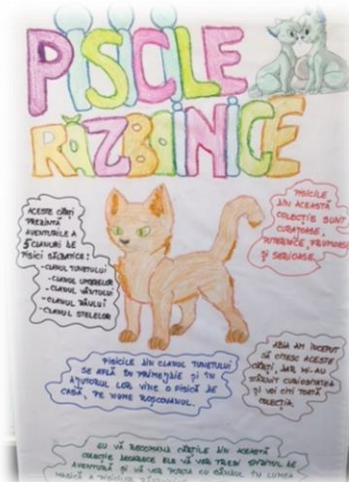 PISICILE
RĂZBOINICE
ACESTE CĂRȚI
PREZINTĂ
AVENTURILE A
5 CLANURI DE
PISICI SĂLBATICE:
-CLANUL TUNETULUI
-CLANUL UMBRELOR
-CLANUL VÂNTULUI
-CLANUL RÂULUI
-CLANUL STELELOR
PISICILE
DIN ACEASTĂ
COLECȚIE SUNT
CURAJOASE,
PUTERNICE, FRUMOASE
ȘI SERIOASE.
PISICILE DIN CLANUL TUNETULUI
SE AFLĂ ÎN PRIMEJDIE ȘI ÎN
AJUTORUL LOR VINE O PISICĂ DE
CASĂ, PE NUME ROȘCOVANUL.
ABIA AM ÎNCEPUT
SĂ CITESC ACESTE
CĂRȚI, DAR MI-AU
STÂRNIT CURIOZITATEA
ȘI VOI CITI TOATĂ
COLECȚIA.
EU VĂ RECOMAND CĂRȚILE DIN ACEASTĂ
COLECȚIE DEOARECE ELE VĂ VOR TREZI SPIRITUL DE
AVENTURĂ ȘI VĂ VOR PURTA CU GÂNDUL ÎN LUMEA
MAGICĂ A PISICILOR